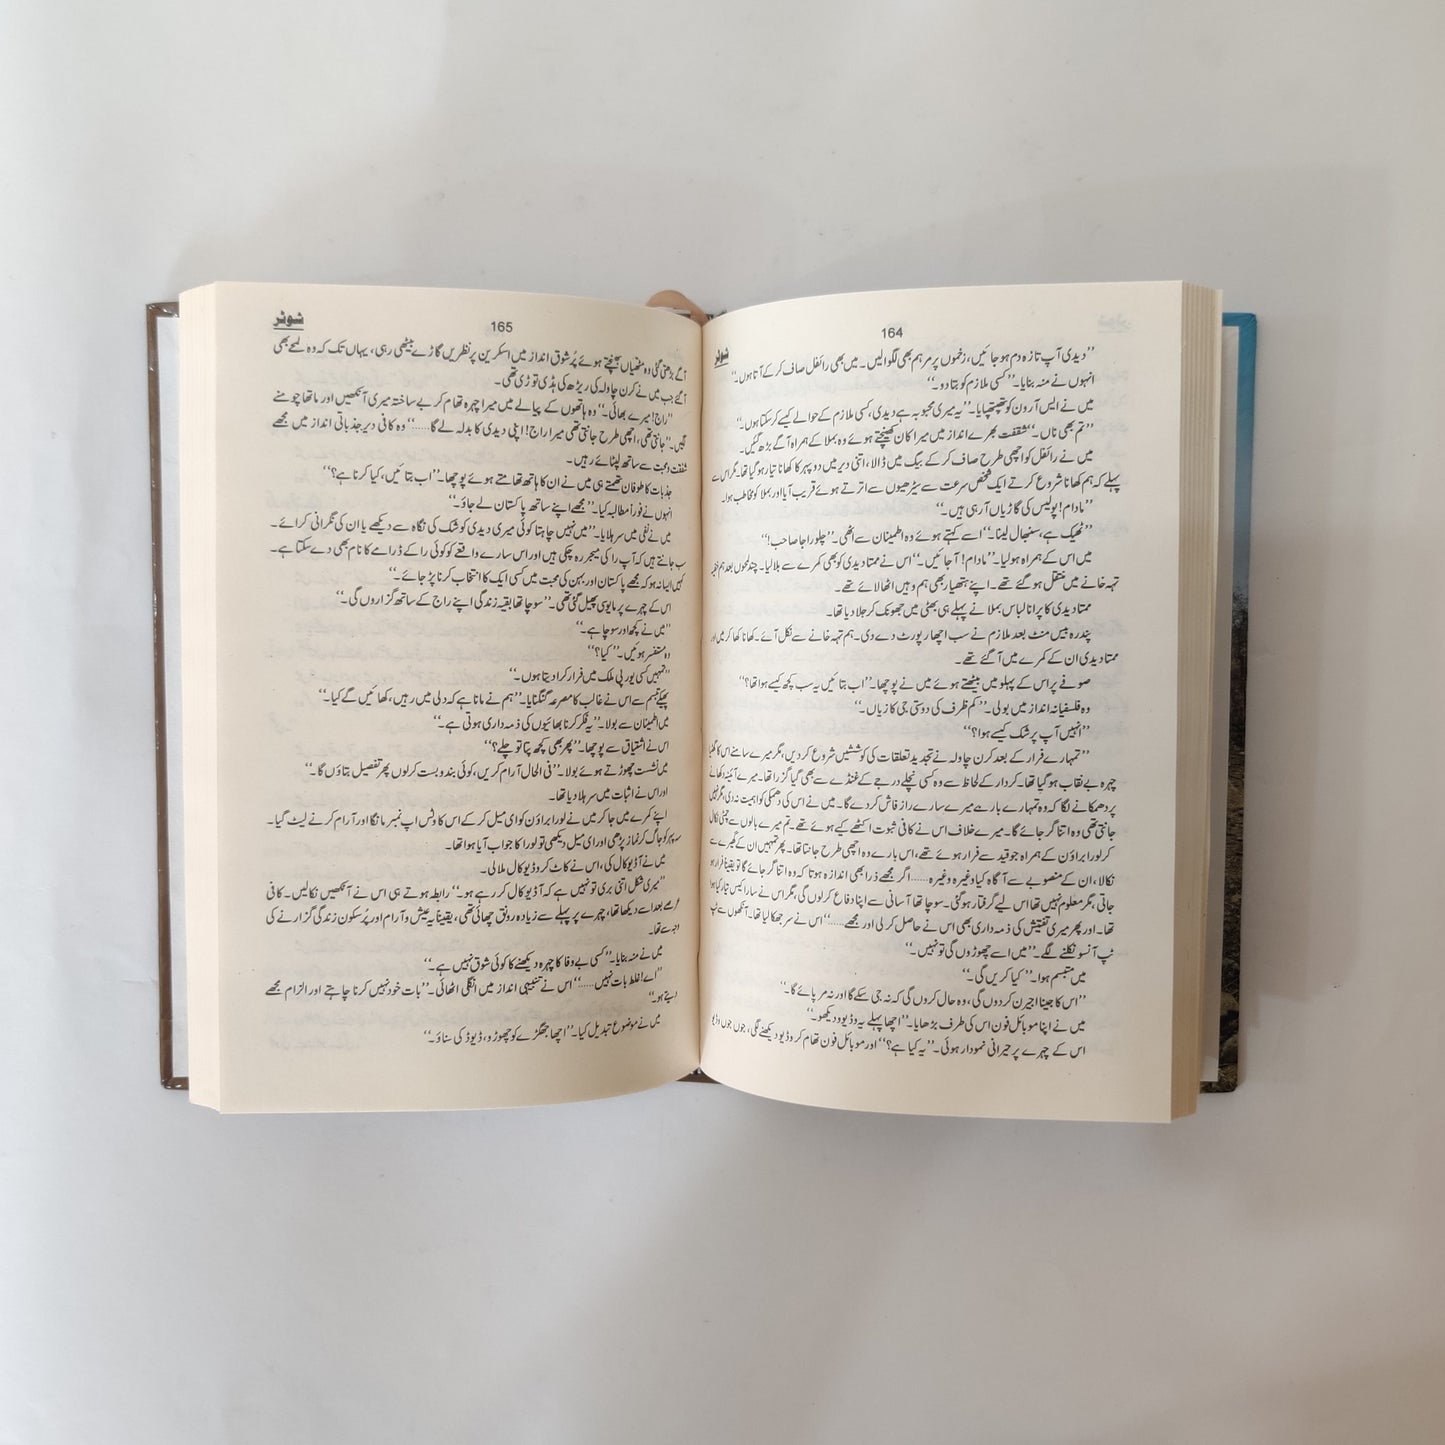 164
شوٹر
”دیدی آپ تازہ دم ہو جائیں، زخموں پر مرہم بھی لگوا لیں۔ میں بھی رائفل صاف کر کے آتا ہوں۔“
انہوں نے منہ بنایا۔ ”کسی ملازم کو بتا دو۔“
میں نے ایس آر ون کو تھپتھپایا۔ ”یہ میری محبوبہ ہے دیدی، کسی ملازم کے حوالے کیسے کر سکتا ہوں۔“
”تم بھی ناں۔“ شفقت بھرے انداز میں میرا کان کھینچتے ہوئے وہ بملا کے ہمراہ آگے بڑھ گئیں۔
میں نے رائفل کو اچھی طرح صاف کر کے بیگ میں ڈالا، اتنی دیر میں دوپہر کا کھانا تیار ہو گیا تھا۔ مگر اس سے
پہلے کہ ہم کھانا شروع کرتے ایک شخص سرعت سے سیڑھیوں سے اترتے ہوئے قریب آیا اور بملا کو مخاطب ہوا۔
”مادام! پولیس کی گاڑیاں آ رہی ہیں۔“
”ٹھیک ہے، سنبھال لینا۔“ اسے کہتے ہوئے وہ اطمینان سے اٹھی۔ ”چلو راجا صاحب!“
میں اس کے ہمراہ ہو لیا۔ ”مادام! آ جائیں۔“ اس نے ممتا دیدی کو بھی کمرے سے بلا لیا۔ چند لمحوں بعد ہم خفیہ
تہہ خانے میں منتقل ہو گئے تھے۔ اپنے ہتھیار بھی ہم وہیں اٹھا لائے تھے۔
ممتا دیدی کا پرانا لباس بملا نے پہلے ہی بھٹی میں جھونک کر جلا دیا تھا۔
پندرہ بیس منٹ بعد ملازم نے سب اچھا رپورٹ دے دی۔ ہم تہہ خانے سے نکل آئے۔ کھانا کھا کر میں اور
ممتا دیدی ان کے کمرے میں آ گئے تھے۔
صوفے پر اس کے پہلو میں بیٹھتے ہوئے میں نے پوچھا۔ ”اب بتائیں یہ سب کچھ کیسے ہوا تھا؟“
وہ فلسفیانہ انداز میں بولی۔ ”کم ظرف کی دوستی جی کا زیاں۔“
”انہیں آپ پر شک کیسے ہوا؟“
”تمہارے فرار کے بعد کرن چاولہ نے تجدید تعلقات کی کوششیں شروع کر دیں، مگر میرے سامنے اس کا گھٹیا
چہرہ بے نقاب ہو گیا تھا۔ کردار کے لحاظ سے وہ کسی نچلے درجے کے غنڈے سے بھی گیا گزرا تھا۔ میرے آئینہ دکھانے
پر دھمکانے لگا کہ وہ تمہارے بارے میرے سارے راز فاش کر دے گا۔ میں نے اس کی دھمکی کو اہمیت نہ دی، مگر نہیں
جانتی تھی وہ اتنا گر جائے گا۔ میرے خلاف اس نے کافی ثبوت اکٹھے کیے ہوئے تھے۔ تم میرے بالوں سے چمٹی نکال
کر لورا براؤن کے ہمراہ جو قید سے فرار ہوئے تھے، اس بارے وہ اچھی طرح جانتا تھا۔ پھر تمہیں ان کے گھیرے سے
نکالا، ان کے منصوبے سے آگاہ کیا وغیرہ وغیرہ...... اگر مجھے ذرا بھی اندازہ ہوتا کہ وہ اتنا گر جائے گا تو یقیناً فرار ہو
جاتی، مگر معلوم نہیں تھا اس لیے گرفتار ہو گئی۔ سوچا تھا آسانی سے اپنا دفاع کر لوں گی، مگر اس نے سارا کیس تیار کیا ہوا
تھا۔ اور پھر میری تفتیش کی ذمہ داری بھی اس نے حاصل کر لی اور مجھے......“ اس نے سر جھکا لیا تھا۔ آنکھوں سے ٹپ
ٹپ آنسو نکلنے لگے۔ ”میں اسے چھوڑوں گی تو نہیں۔“
میں متبسم ہوا۔ ”کیا کریں گی۔“
”اس کا جینا اجیرن کر دوں گی، وہ حال کروں گی کہ نہ جی سکے گا اور نہ مر پائے گا۔“
میں نے اپنا موبائل فون اس کی طرف بڑھایا۔ ”اچھا پہلے یہ وڈیو دیکھو۔“
اس کے چہرے پر حیرانی نمودار ہوئی۔ ”یہ کیا ہے؟“ اور موبائل فون تھام کر وڈیو دیکھنے لگی، جوں جوں وڈیو
165
شوٹر
آگے بڑھتی گئی وہ مٹھیاں بھینچتے ہوئے پُر شوق انداز میں اسکرین پر نظریں گاڑے بیٹھی رہی، یہاں تک کہ وہ لمحے بھی
آ گئے جب میں نے کرن چاولہ کی ریڑھ کی ہڈی توڑی تھی۔
”راج! میرے بھائی۔“ وہ ہاتھوں کے پیالے میں میرا چہرہ تھام کر بے ساختہ میری آنکھیں اور ماتھا چومنے
لگیں۔ ”جانتی تھی، اچھی طرح جانتی تھی میرا راج! اپنی دیدی کا بدلہ لے گا......“ وہ کافی دیر جذباتی انداز میں مجھے
شفقت و محبت سے ساتھ لپٹائے رہیں۔
جذبات کا طوفان تھمتے ہی میں نے ان کا ہاتھ تھامتے ہوئے پوچھا۔ ”اب بتائیں، کیا کرنا ہے؟“
انہوں نے فوراً مطالبہ کیا۔ ”مجھے اپنے ساتھ پاکستان لے جاؤ۔“
میں نے نفی میں سر ہلایا۔ ”میں نہیں چاہتا کوئی میری دیدی کو شک کی نگاہ سے دیکھے یا ان کی نگرانی کرائے۔
سب جانتے ہیں کہ آپ را کی میجر رہ چکی ہیں اور اس سارے واقعے کو کوئی را کے ڈرامے کا نام بھی دے سکتا ہے۔
کہیں ایسا نہ ہو کہ مجھے پاکستان اور بہن کی محبت میں کسی ایک کا انتخاب کرنا پڑ جائے۔“
اس کے چہرے پر مایوسی پھیل گئی تھی۔ ”سوچا تھا بقیہ زندگی اپنے راج کے ساتھ گزاروں گی۔“
”میں نے کچھ اور سوچا ہے۔“
وہ مستفسر ہوئیں۔ ”کیا؟“
”تمہیں کسی یورپی ملک میں فرار کرا دیتا ہوں۔“
پھیکے تبسم سے اس نے غالب کا مصرعہ گنگنایا۔ ”ہم نے مانا ہے کہ دلی میں رہیں، کھائیں گے کیا۔
میں اطمینان سے بولا۔ ”یہ فکر کرنا بھائیوں کی ذمہ داری ہوتی ہے۔“
اس نے اشتیاق سے پوچھا۔ ”پھر بھی کچھ پتا تو چلے؟“
میں نشست چھوڑتے ہوئے بولا۔ ”فی الحال آرام کریں، کوئی بندوبست کر لوں پھر تفصیل بتاؤں گا۔“
اور اس نے اثبات میں سر ہلا دیا تھا۔
اپنے کمرے میں جا کر میں نے لورا براؤن کو ای میل کر کے اس کا وٹس ایپ نمبر مانگا اور آرام کرنے لیٹ گیا۔
سہ پہر کو جاگ کر نماز پڑھی اور ای میل دیکھی تو لورا کا جواب آیا ہوا تھا۔
میں نے آڈیو کال کی، اس نے کاٹ کر وڈیو کال ملا لی۔
”میری شکل اتنی بری تو نہیں ہے کہ آڈیو کال کر رہے ہو۔“ رابطہ ہوتے ہی اس نے آنکھیں نکالیں۔ کافی
عرصے بعد اسے دیکھا تھا، چہرے پر پہلے سے زیادہ رونق چھائی تھی، یقیناً یہ عیش و آرام اور پُر سکون زندگی گزارنے کی
وجہ سے تھا۔
میں نے منہ بنایا۔ ”کسی بے وفا کا چہرہ دیکھنے کا کوئی شوق نہیں ہے۔“
”اے! غلط بات نہیں......“ اس نے تنبیہی انداز میں انگلی اٹھائی۔ ”بات خود نہیں کرنا چاہتے اور الزام مجھے
دیتے ہو۔“
میں نے موضوع تبدیل کیا۔ ”اچھا جھگڑے کو چھوڑو، ڈیوڈ کی سناؤ۔“